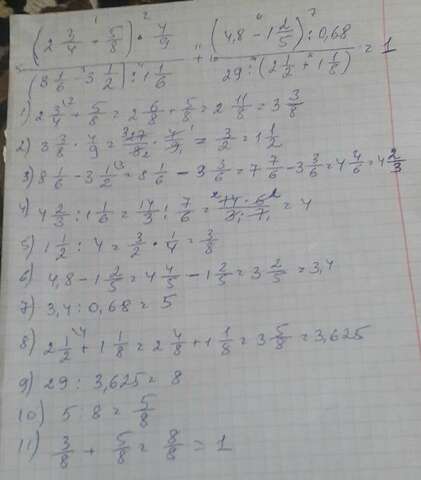 (2 3/4 + 5/8) · 4/9 / (8 1/6 - 3 1/2) : 1 1/6 + (4,8 - 1 2/5) : 0,68 / 29 : (2 1/2 + 1 1/8) = 1
1) 2 3/4 + 5/8 = 2 6/8 + 5/8 = 2 11/8 = 3 3/8
2) 3 3/8 · 4/9 = 27/8 · 4/9 = 3/2 = 1 1/2
3) 8 1/6 - 3 1/2 = 8 1/6 - 3 3/6 = 7 7/6 - 3 3/6 = 4 4/6 = 4 2/3
4) 4 2/3 : 1 1/6 = 14/3 : 7/6 = 14 · 6 / 3 · 7 = 4
5) 1 1/2 : 4 = 3/2 · 1/4 = 3/8
6) 4,8 - 1 2/5 = 4 4/5 - 1 2/5 = 3 2/5 = 3,4
7) 3,4 : 0,68 = 5
8) 2 1/2 + 1 1/8 = 2 4/8 + 1 1/8 = 3 5/8 = 3,625
9) 29 : 3,625 = 8
10) 5 : 8 = 5/8
11) 3/8 + 5/8 = 8/8 = 1